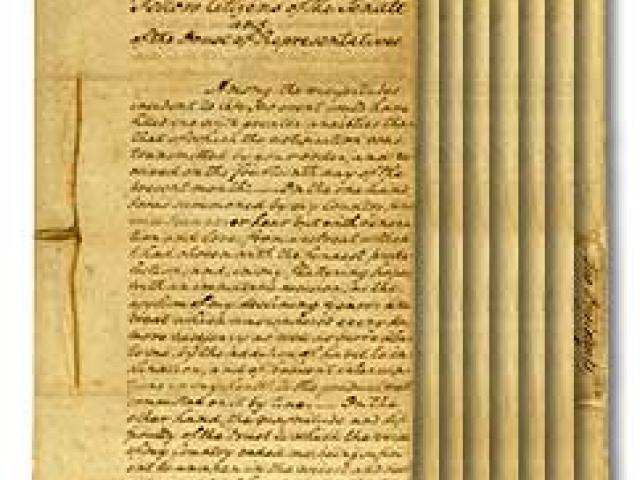 Fellow Citizens of the Senate
and
of the House of Representatives
Among the vicissitudes
incident to life, no event could have
filled me with greater anxieties than
that of which the notification was
transmitted by your order, and re
ceived on the fourteenth day of the
present month:— On the one hand,
I was summoned by my Country,
can never hear but with venera-
tion and love, from a retreat which
I had chosen with the fondest predi-
lection, and, in my flattering hopes,
with an immutable decision, as the
asylum of my declining years: a re
treat which was rendered every day
more necessary as well as more dear
to me, by the addition of habit to in-
clination, and of frequent interrup-
tions in my health to the gradual waste
committed on it by time.— On the
other hand, the magnitude and dif-
ficulty of the trust to which the voice
of my Country called me, being suffici
ent to awaken in the wisest and most